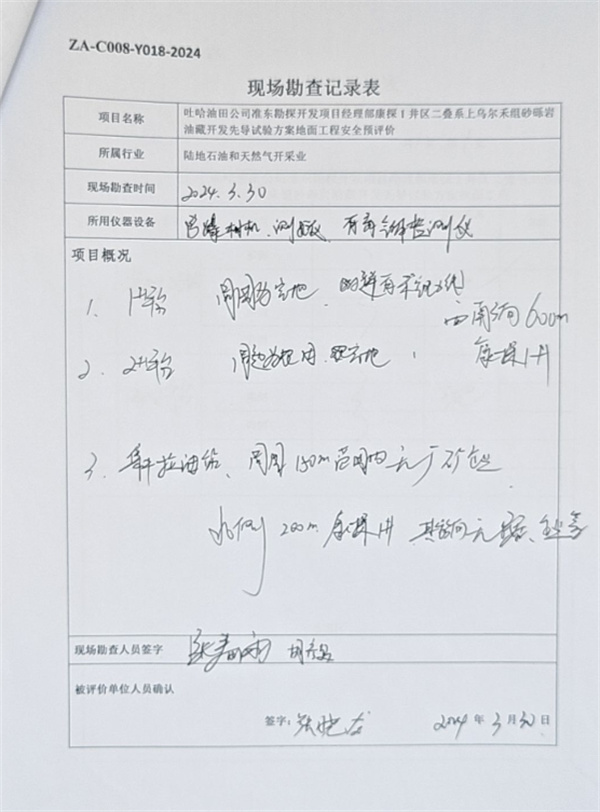 ZA-C008-Y018-2024
现场勘查记录表
项目名称
吐哈油田公司准东勘探开发项目经理部康探1井区二叠系上乌尔禾组砂砾岩
油藏开发先导试验方案地面工程安全预评价
所属行业
陆地石油和天然气开采业
现场勘查时间
2024.3.30
所用仪器设备
防爆相机、测距仪、有毒气体检测仪
项目概况
1、1#平台 周围为空地
西南向600m
2、2#平台
康探1井
3、集中拉油站、周围150m范围内无厂矿企业
200m 康探1井
现场勘查人员签字
被评价单位人员确认
签字:
2024 年 3 月 30 日